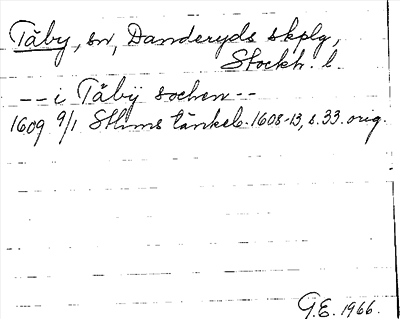 Täby, sn, Danderyds skplg,
Stockh. l.
-- i Täbÿ sochen --
1609 9/1 Sthms tänkeb. 1608-13, s. 33. orig.
G.E. 1966.